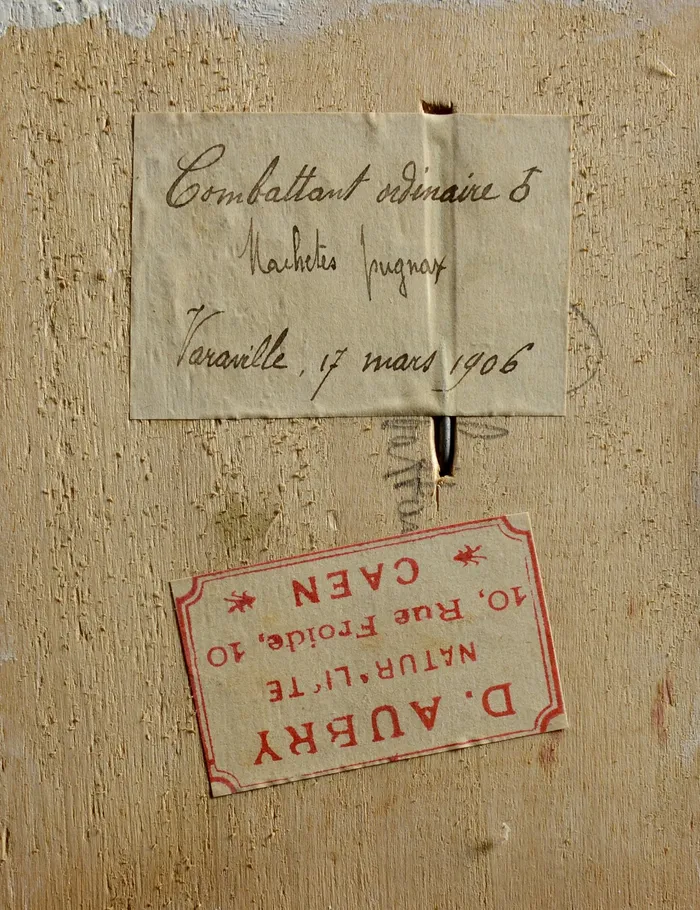 Combattant ordinaire ♂
Machetes pugnax
Varaville, 17 mars 1906
D. AUBRY
NATUR'LI'TE
10, Rue Froide, 10
CAEN